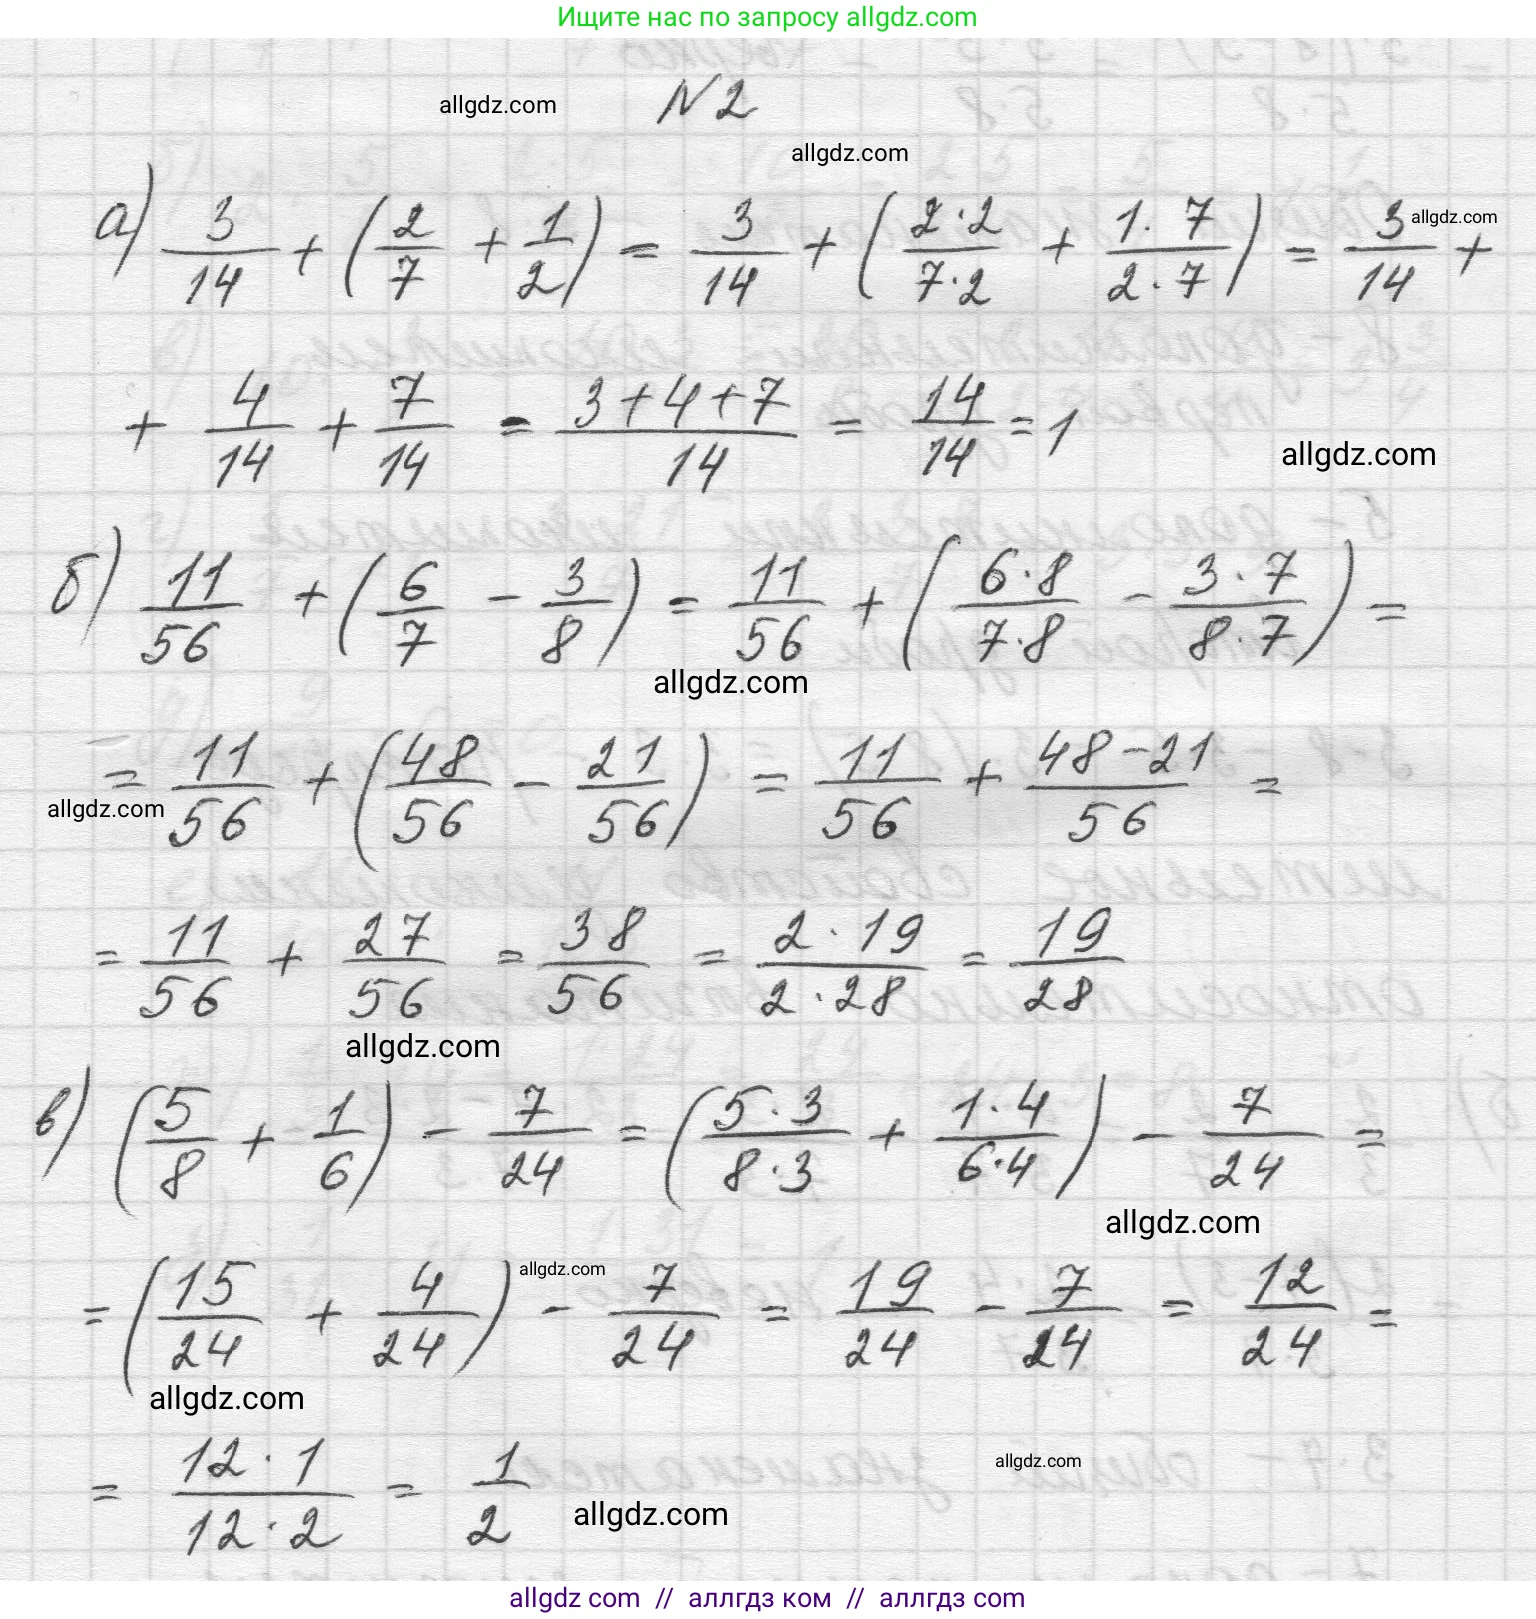 Ищите нас по запросу allgdz.com
allgdz.com
N 2
allgdz.com
а) 3/14 + (2/7 + 1/2) = 3/14 + (2·2/7·2 + 1·7/2·7) = 3/14 +
allgdz.com
+ 4/14 + 7/14 = 3+4+7/14 = 14/14 = 1
allgdz.com
б) 11/56 + (6/7 - 3/8) = 11/56 + (6·8/7·8 - 3·7/8·7) =
allgdz.com
= 11/56 + (48/56 - 21/56) = 11/56 + 48-21/56 =
allgdz.com
= 11/56 + 27/56 = 38/56 = 2·19/2·28 = 19/28
allgdz.com
в) (5/8 + 1/6) - 7/24 = (5·3/8·3 + 1·4/6·4) - 7/24 =
allgdz.com
= (15/24 + 4/24) - 7/24 = 19/24 - 7/24 = 12/24 =
allgdz.com
allgdz.com
= 12·1/12·2 = 1/2
allgdz.com
allgdz.com
allgdz com // аллгдз ком // аллгдз com